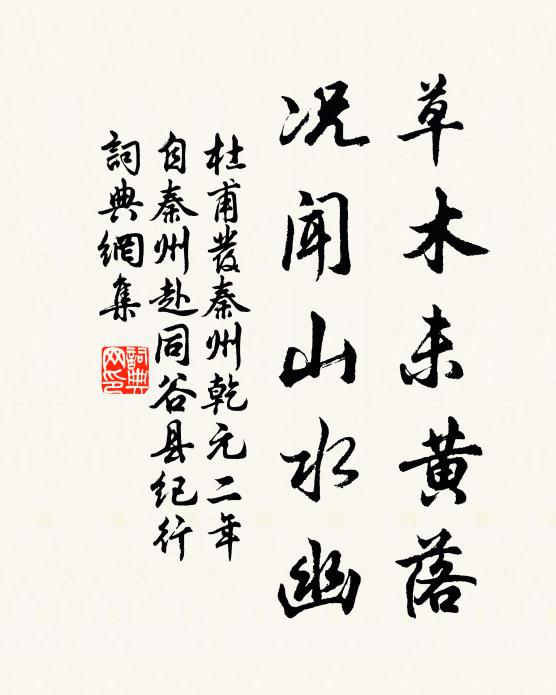 草木未黄落
况聞山水幽
杜甫發秦州乾元二年
自秦州赴同谷县纪行
詞典網集
詞典
网印